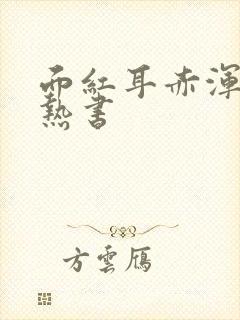 面紅耳赤渾
熱書
方雲鴈